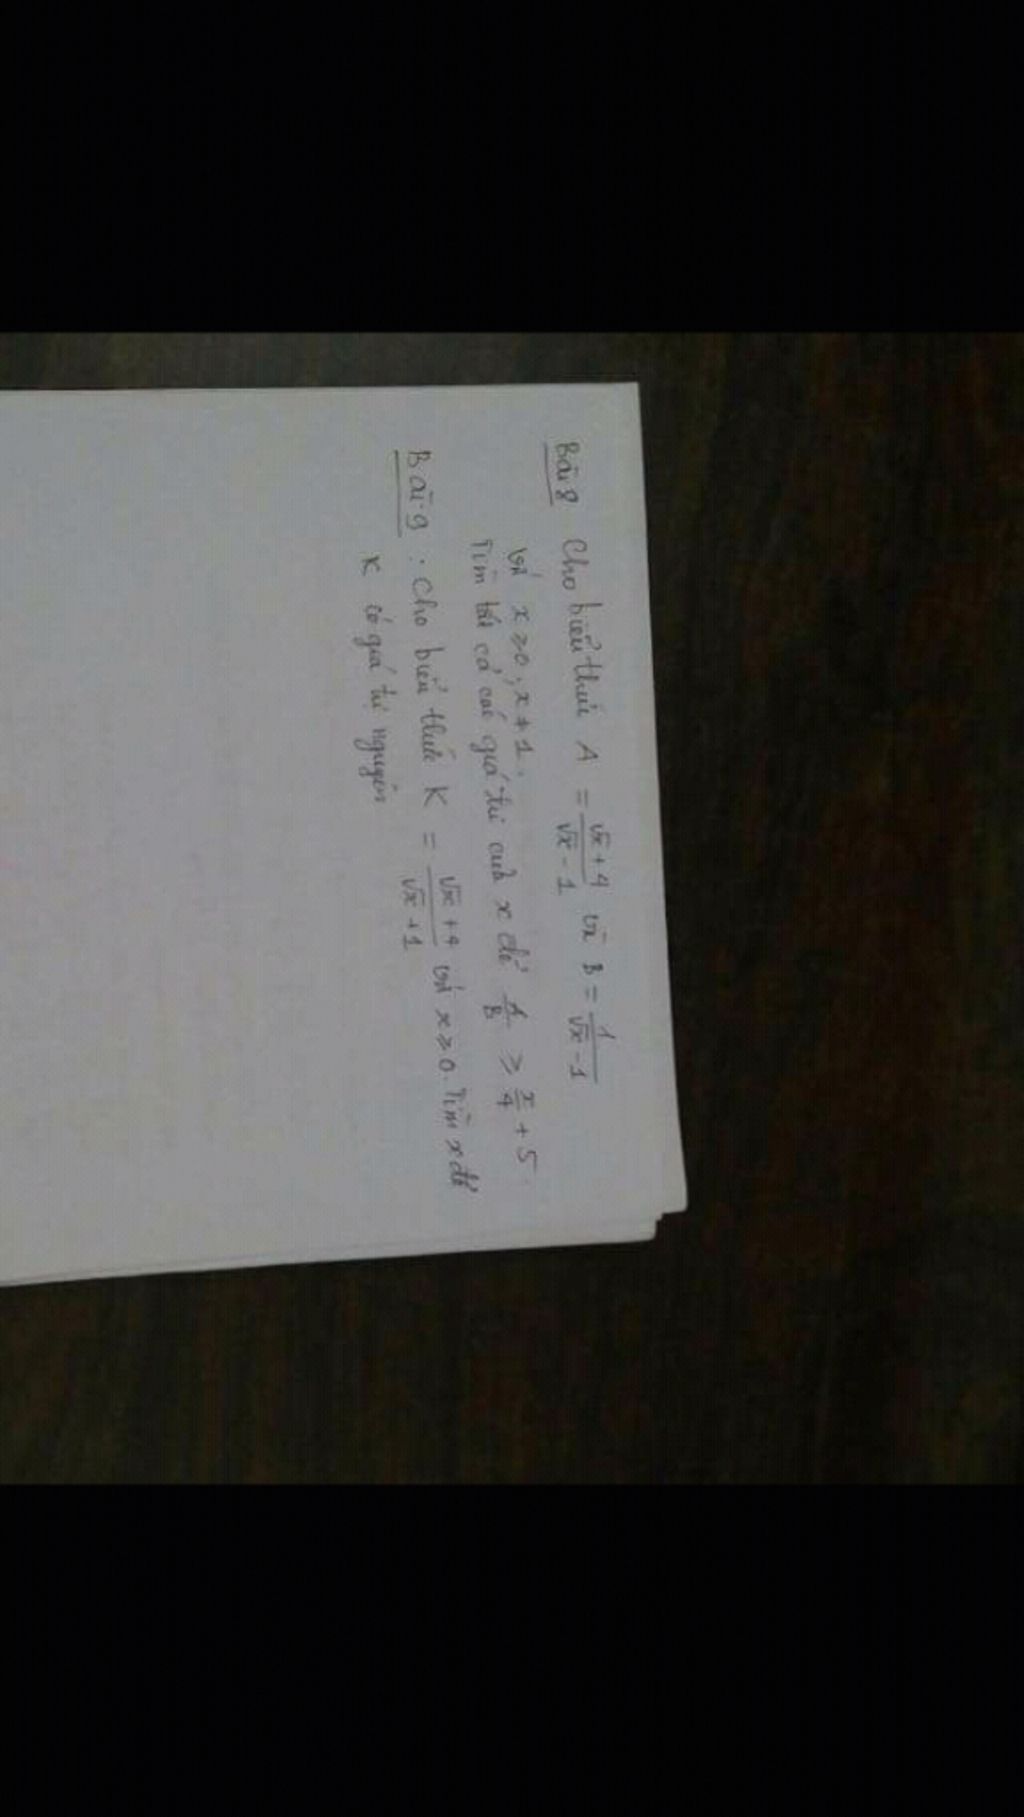 Bài 8 Cho biểu thức A = (√x + 4)/(√x - 1) và B = 1/(√x - 1)
với x ≥ 0; x ≠ 1.
Tìm tất cả các giá trị của x để A/B ≥ x/4 + 5.
Bài 9. Cho biểu thức K = (√x + 4)/(√x + 1) với x ≥ 0. Tìm x để
K có giá trị nguyên